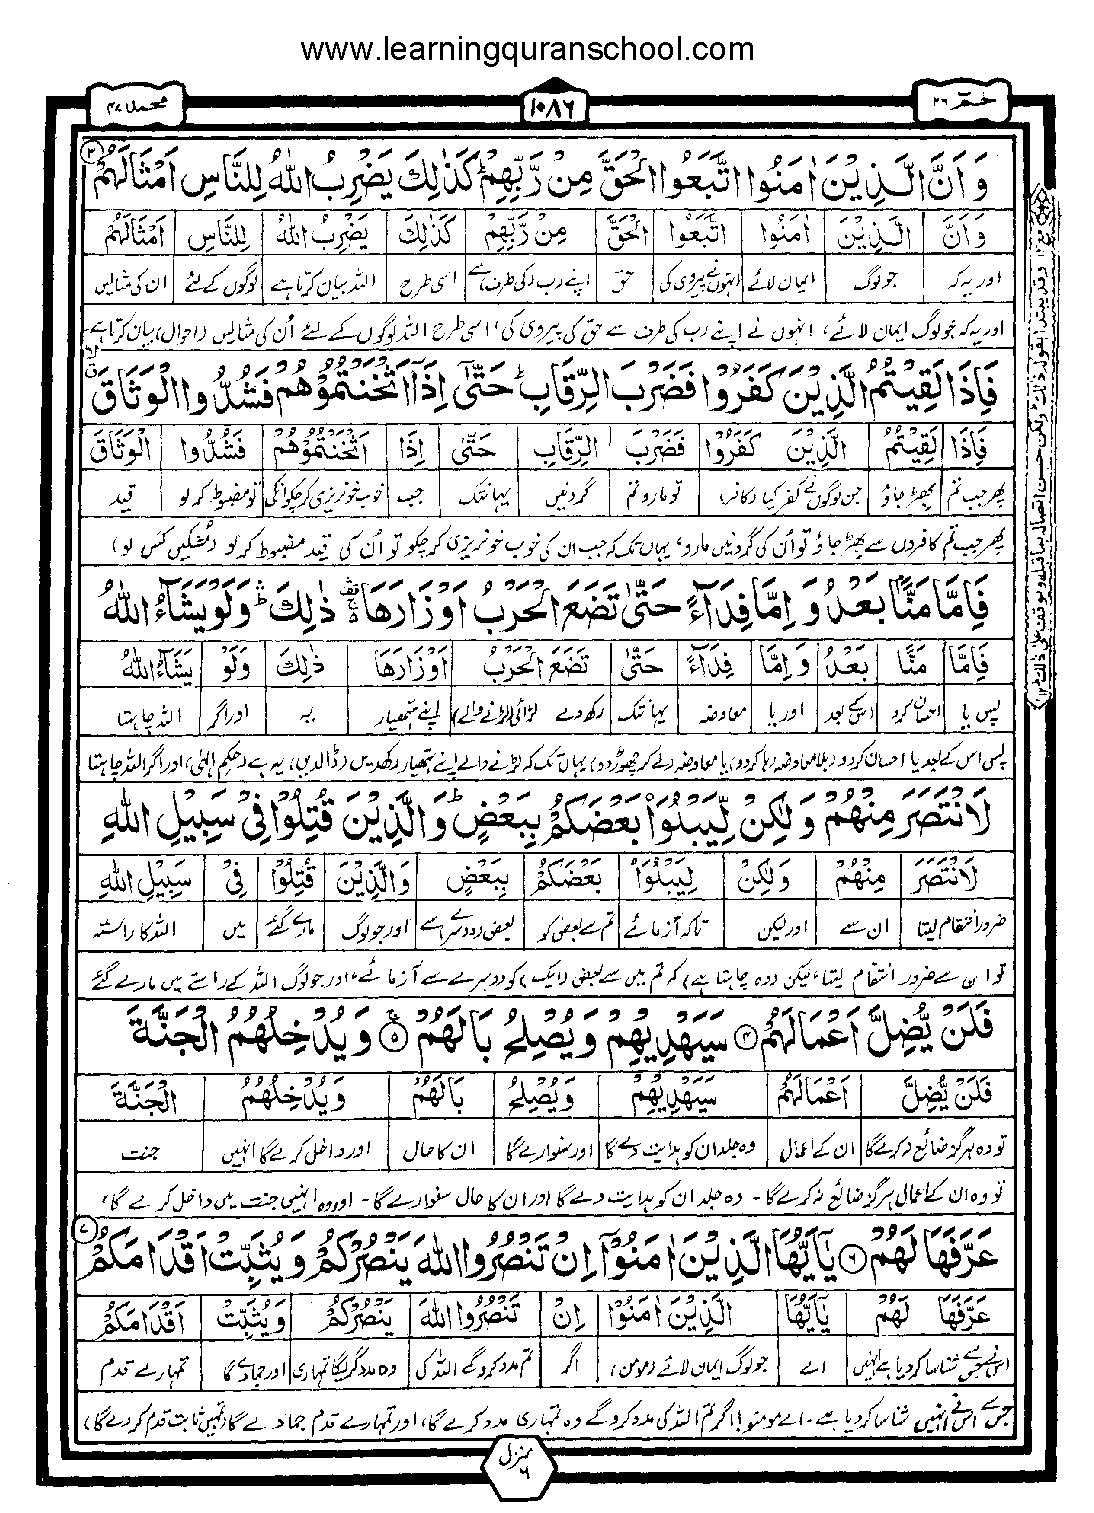 www.learningquranschool.com
محمد ۴۷
۱۰۸۶
حٰمٓ ۲۶
وَ اَنَّ الَّذِيْنَ اٰمَنُوا اتَّبَعُوا الْحَقَّ مِنْ رَّبِّهِمْ ؕ كَذٰلِكَ يَضْرِبُ اللّٰهُ لِلنَّاسِ اَمْثَالَهُمْ ۳
وَ اَنَّ الَّذِيْنَ اٰمَنُوا اتَّبَعُوا الْحَقَّ مِنْ رَّبِّهِمْ كَذٰلِكَ يَضْرِبُ اللّٰهُ لِلنَّاسِ اَمْثَالَهُمْ
اور یہ کہ جو لوگ ایمان لائے انہوں نے پیروی کی حق اپنے رب کی طرف سے اسی طرح اللہ بیان کرتا ہے لوگوں کے لئے ان کی مثالیں
اور یہ کہ جو لوگ ایمان لائے، انہوں نے اپنے رب کی طرف سے حق کی پیروی کی، اسی طرح اللہ لوگوں کے لئے اُن کی مثالیں (احوال) بیان کرتا ہے
فَاِذَا لَقِيْتُمُ الَّذِيْنَ كَفَرُوْا فَضَرْبَ الرِّقَابِ ؕ حَتّٰۤى اِذَاۤ اَثْخَنْتُمُوْهُمْ فَشُدُّوا الْوَثَاقَ
فَاِذَا لَقِيْتُمُ الَّذِيْنَ كَفَرُوْا فَضَرْبَ الرِّقَابِ حَتّٰۤى اِذَا اَثْخَنْتُمُوْهُمْ فَشُدُّوا الْوَثَاقَ
پھر جب تم بھڑ جاؤ جن لوگوں نے کفر کیا (کافر) تو مارو تم گردنیں یہانتک جب خوب خونریزی کر چکو انکی تو مضبوط کر لو قید
پھر جب تم کافروں سے بھڑ جاؤ تو اُن کی گردنیں مارو، یہاں تک کہ جب ان کی خوب خونریزی کر چکو تو اُن کی قید مضبوط کر لو (مُشکیں کَس لو)
فَاِمَّا مَنًّۢا بَعْدُ وَ اِمَّا فِدَآءً حَتّٰى تَضَعَ الْحَرْبُ اَوْزَارَهَا ۛ ذٰلِكَ ؕ وَ لَوْ يَشَآءُ اللّٰهُ
فَاِمَّا مَنًّا بَعْدُ وَ اِمَّا فِدَآءً حَتّٰى تَضَعَ الْحَرْبُ اَوْزَارَهَا ذٰلِكَ وَلَوْ يَشَآءُ اللّٰهُ
پس یا احسان کرو اسکے بعد اور یا معاوضہ یہانتک رکھ دے لڑائی (لڑنے والے) اپنے ہتھیار یہ اور اگر اللہ چاہتا
پس اس کے بعد یا احسان کر دو (بلا معاوضہ رہا کر دو) یا معاوضہ لے کر چھوڑ دو، یہاں تک کہ لڑنے والے اپنے ہتھیار رکھ دیں (ڈالدیں)، یہ ہے (حکم الٰہی) اور اگر اللہ چاہتا
لَانْتَصَرَ مِنْهُمْ وَ لٰكِنْ لِّيَبْلُوَا۠ بَعْضَكُمْ بِبَعْضٍ ؕ وَ الَّذِيْنَ قُتِلُوْا فِيْ سَبِيْلِ اللّٰهِ
لَانْتَصَرَ مِنْهُمْ وَلٰكِنْ لِّيَبْلُوَا۠ بَعْضَكُمْ بِبَعْضٍ وَالَّذِيْنَ قُتِلُوْا فِيْ سَبِيْلِ اللّٰهِ
ضرور انتقام لیتا ان سے اور لیکن تاکہ آزمائے تم سے بعض کو بعض (دوسرے) سے اور جو لوگ مارے گئے میں اللہ کا راستہ
تو ان سے ضرور انتقام لیتا، لیکن (وہ چاہتا ہے) کہ تم میں سے بعض (ایک) کو دوسرے سے آزمائے، اور جو لوگ اللہ کے راستے میں مارے گئے
فَلَنْ يُّضِلَّ اَعْمَالَهُمْ ۴ سَيَهْدِيْهِمْ وَ يُصْلِحُ بَالَهُمْ ۵ وَ يُدْخِلُهُمُ الْجَنَّةَ
فَلَنْ يُّضِلَّ اَعْمَالَهُمْ سَيَهْدِيْهِمْ وَيُصْلِحُ بَالَهُمْ وَيُدْخِلُهُمُ الْجَنَّةَ
تو وہ ہرگز ضائع نہ کرے گا ان کے اعمال وہ جلد ان کو ہدایت دے گا اور سنوارے گا ان کا حال اور داخل کرے گا انہیں جنت
تو وہ ان کے اعمال ہرگز ضائع نہ کرے گا - وہ جلد ان کو ہدایت دے گا اور ان کا حال سنوارے گا - اور وہ انہیں جنت میں داخل کرے گا،
عَرَّفَهَا لَهُمْ ۶ يٰۤاَيُّهَا الَّذِيْنَ اٰمَنُوْۤا اِنْ تَنْصُرُوا اللّٰهَ يَنْصُرْكُمْ وَ يُثَبِّتْ اَقْدَامَكُمْ ۷
عَرَّفَهَا لَهُمْ يٰۤاَيُّهَا الَّذِيْنَ اٰمَنُوْا اِنْ تَنْصُرُوا اللّٰهَ يَنْصُرْكُمْ وَيُثَبِّتْ اَقْدَامَكُمْ
اس نے جس سے شناسا کر دیا ہے انہیں اے جو لوگ ایمان لائے (مومن) اگر تم مدد کرو گے اللہ کی وہ مدد کریگا تمہاری اور جما دے گا تمہارے قدم
جس سے اس نے انہیں شناسا کر دیا ہے - اے مومنو! اگر تم اللہ کی مدد کرو گے وہ تمہاری مدد کرے گا، اور تمہارے قدم جما دے گا (تمہیں ثابت قدم کر دے گا)
منزل ۶